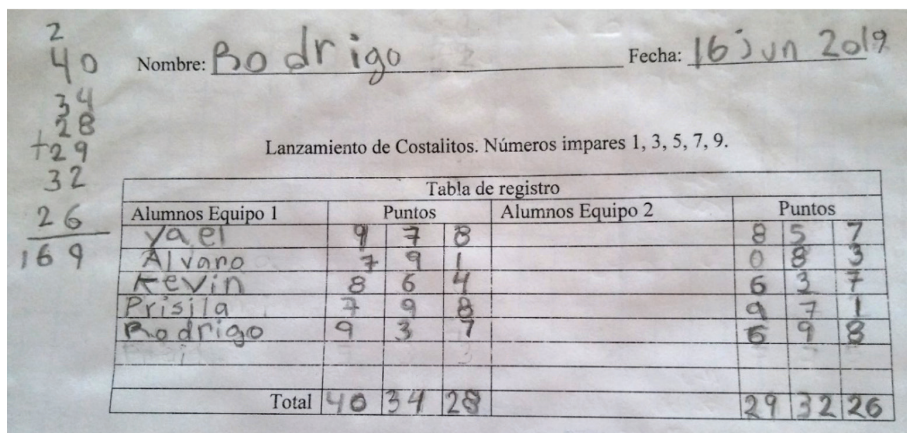 2
40
34
28
+29
32
26
169
Nombre: Rodrigo Fecha: 16 jun 2019
Lanzamiento de Costalitos. Números impares 1, 3, 5, 7, 9.
Tabla de registro
Alumnos Equipo 1 Puntos Alumnos Equipo 2 Puntos
Yael 9 7 8 8 5 7
Alvaro 7 9 1 0 8 3
Kevin 8 6 4 6 3 7
Prisila 7 9 8 9 7 1
Rodrigo 9 3 7 6 9 8
Total 40 34 28 29 32 26